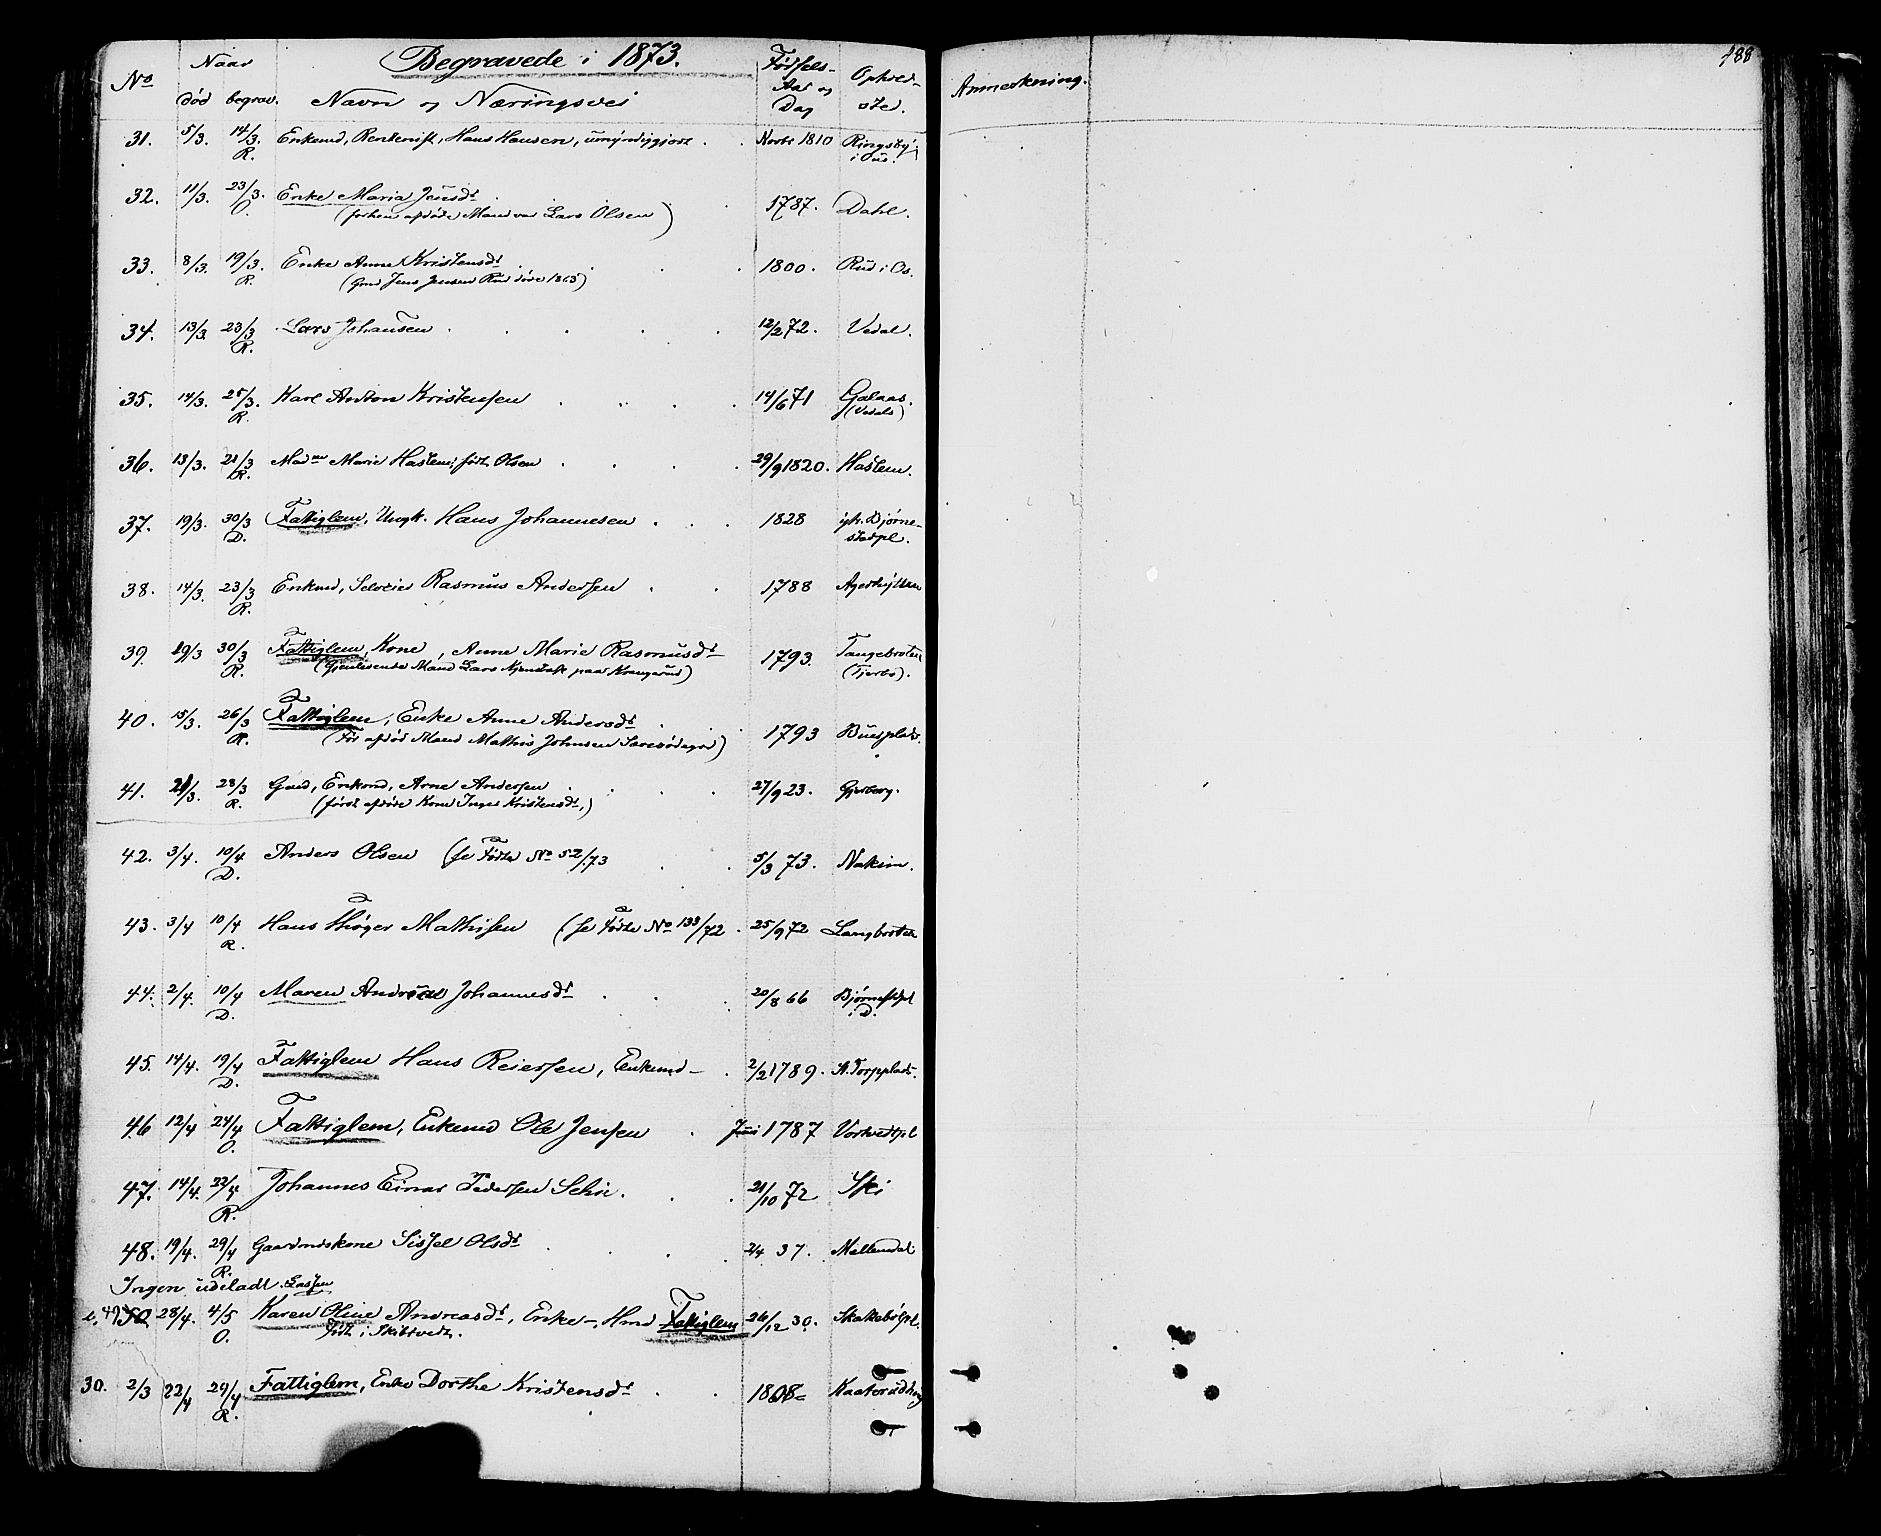 Begravede i 1873.
No Naar død begrav. Navn og Næringsvei Fødsels- Aar og Dag Opholdssted.
Anmerkning.
188
31. 5/3. 14/3. R. Enkemd, Hans Hansen, umyndiggjort 1810 i Aas.
32. 11/3. 23/3. O. Enke Maria Jensdt 1787. Dahl.
(forhen afdøde Mand var Lars Olsen)
33. 8/3. 19/3. R. Enke Anne Kristensdt 1800. Rud i Os.
(Gmd Jens Jensen Rud døde 1863)
34. 13/3. 23/3 R. Lars Johansen 12/2 72. Vedal.
35. 14/3. 25/3. R. Karl Anton Kristensen 14/6 71 Galaas.
(Vedals)
36. 13/3. 21/3 R. Madme Marie Haslem, født Olsen 29/9 1820. Haslem.
37. 19/3. 30/3 D. Fattiglem, Ungk. Hans Johannesen 1828 Bjørne-
stadpl.
38. 14/3. 23/3 R. Enkemd, Selveier Rasmus Andersen 1788
39. 19/3 30/3 R. Fattiglem, Kone, Anne Marie Rasmusdt 1793. Tangebraten
(Gjenlevende Mand Lars paa Krangerud) (Tjerbo).
40. 15/3. 26/3 R. Fattiglem, Enke Anne Andersdt 1793 Buesplads.
(Før afdød Mand Mathis Johnsen)
41. 21/3. 28/3 R. Gmd, Enkemd, Arne Andersen 27/9 23. Gjerberg.
(først afdøde Kone Inger Kristensdt.)
42. 3/4. 10/4 D. Anders Olsen (se Fødte No 52/73 5/3 73. Nakim.
43. 3/4 10/4 R. Hans Thøger Mathisen (se Fødte No 133/72. 25/9 72 Langbraten
44. 2/4. 10/4 D. Maren Andrea Johannesdt 20/8 66 Bjørnestdpl
i D.
45. 14/4. 19/4 D. Fattiglem Hans Reiersen, Enkemd 2/2 1789. St. Torpplads.
46 12/4 24/4 O. Fattiglem, Enkemd Ole Jensen Juni 1787 Vortvedtpl
47. 14/4. 22/4 R. Johannes Einar Pedersen Schie. 21/10 72 Ski
48. 19/4. 29/4 R. Gaardmdskone Sissel Olsdt 2/4 37. Mellendal
Ingen udeladt. Lassen
50 28/4. 4/5 O. Karen Oline Andreasdt, Enke, Hmd Fattiglem 26/12 30. Skakebølpl.
født i Skibtvedt.
30. 2/3 22/4 29/4 R. Fattiglem, Enke Dorthe Kristensdt 1808